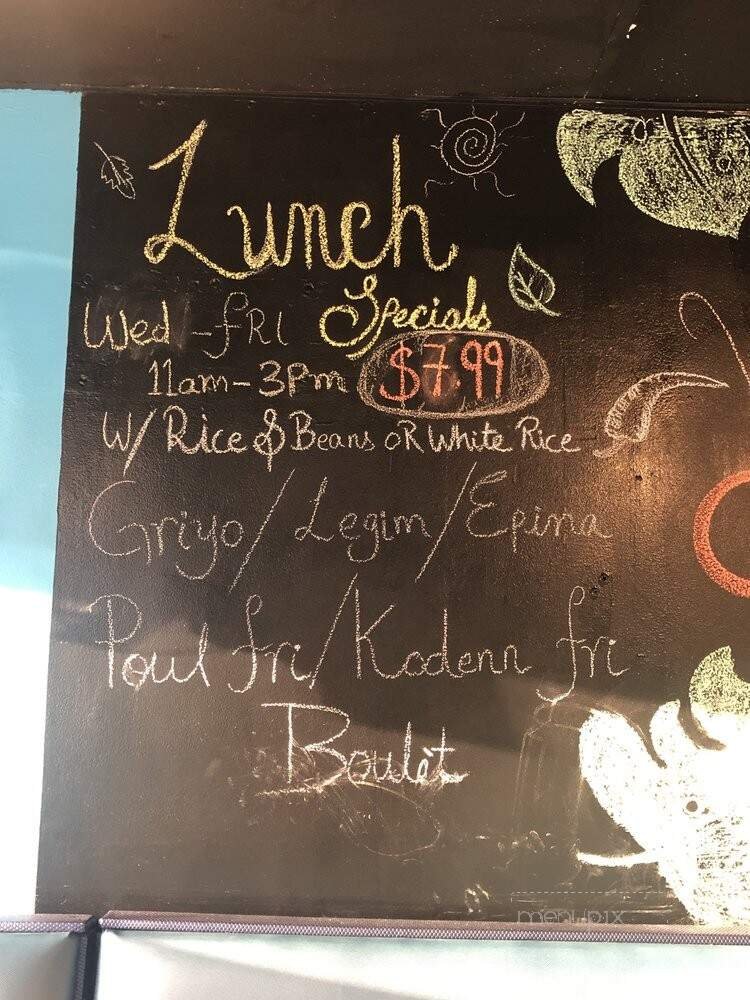 Lunch
Specials
Wed - fRI
11am - 3Pm $7.99
W/ Rice & Beans oR White Rice
Griyo / Legim / Epina
Poul fri / Kodenn fri
Boulèt
menupix